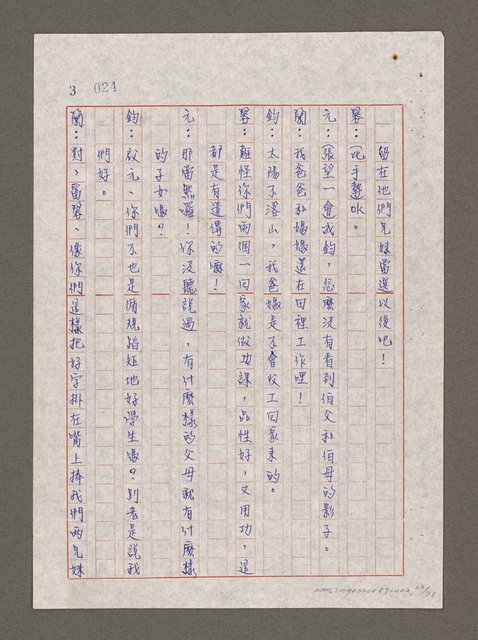 3 024
留在他們兄妹當選以後吧！
琴：（比手勢）OK。
元：（張望一會）成鈞，怎麼沒有看到伯父和伯母的影子。
蘭：我爸爸和媽媽還在田裡工作哩！
鈞：太陽不落山，我爸媽是不會收工回家來的。
琴：難怪你們兩個一回家就做功課，品性好，又用功，這
都是有遺傳的嘛！
元：那當然囉！你沒聽說過，有什麼樣的父母就有什麼樣
的子女嗎？
鈞：啟元、你們不也是循規蹈矩地好學生嗎？別老是說我
們好。
蘭：對，雷琴、像你們這樣把好字掛在嘴上捧我們兩兄妹